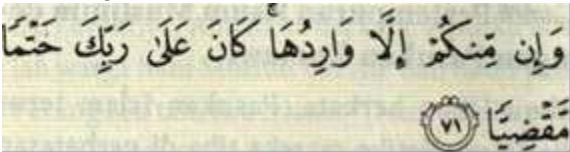 وَإِن مِّنكُمْ إِلَّا وَارِدُهَا ۚ كَانَ عَلَىٰ رَبِّكَ حَتْمًا
مَّقْضِيًّا ﴿٧١﴾